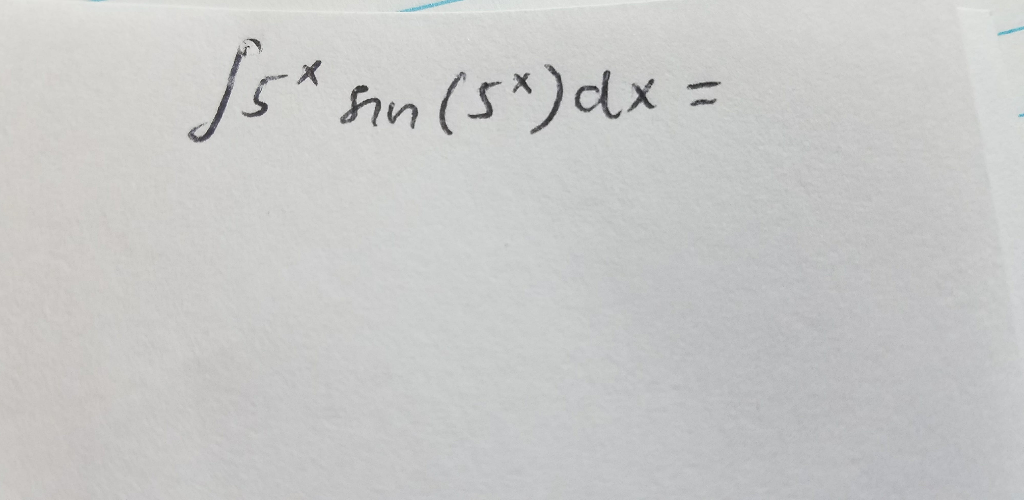 ∫5ˣ sin(5ˣ)dx =